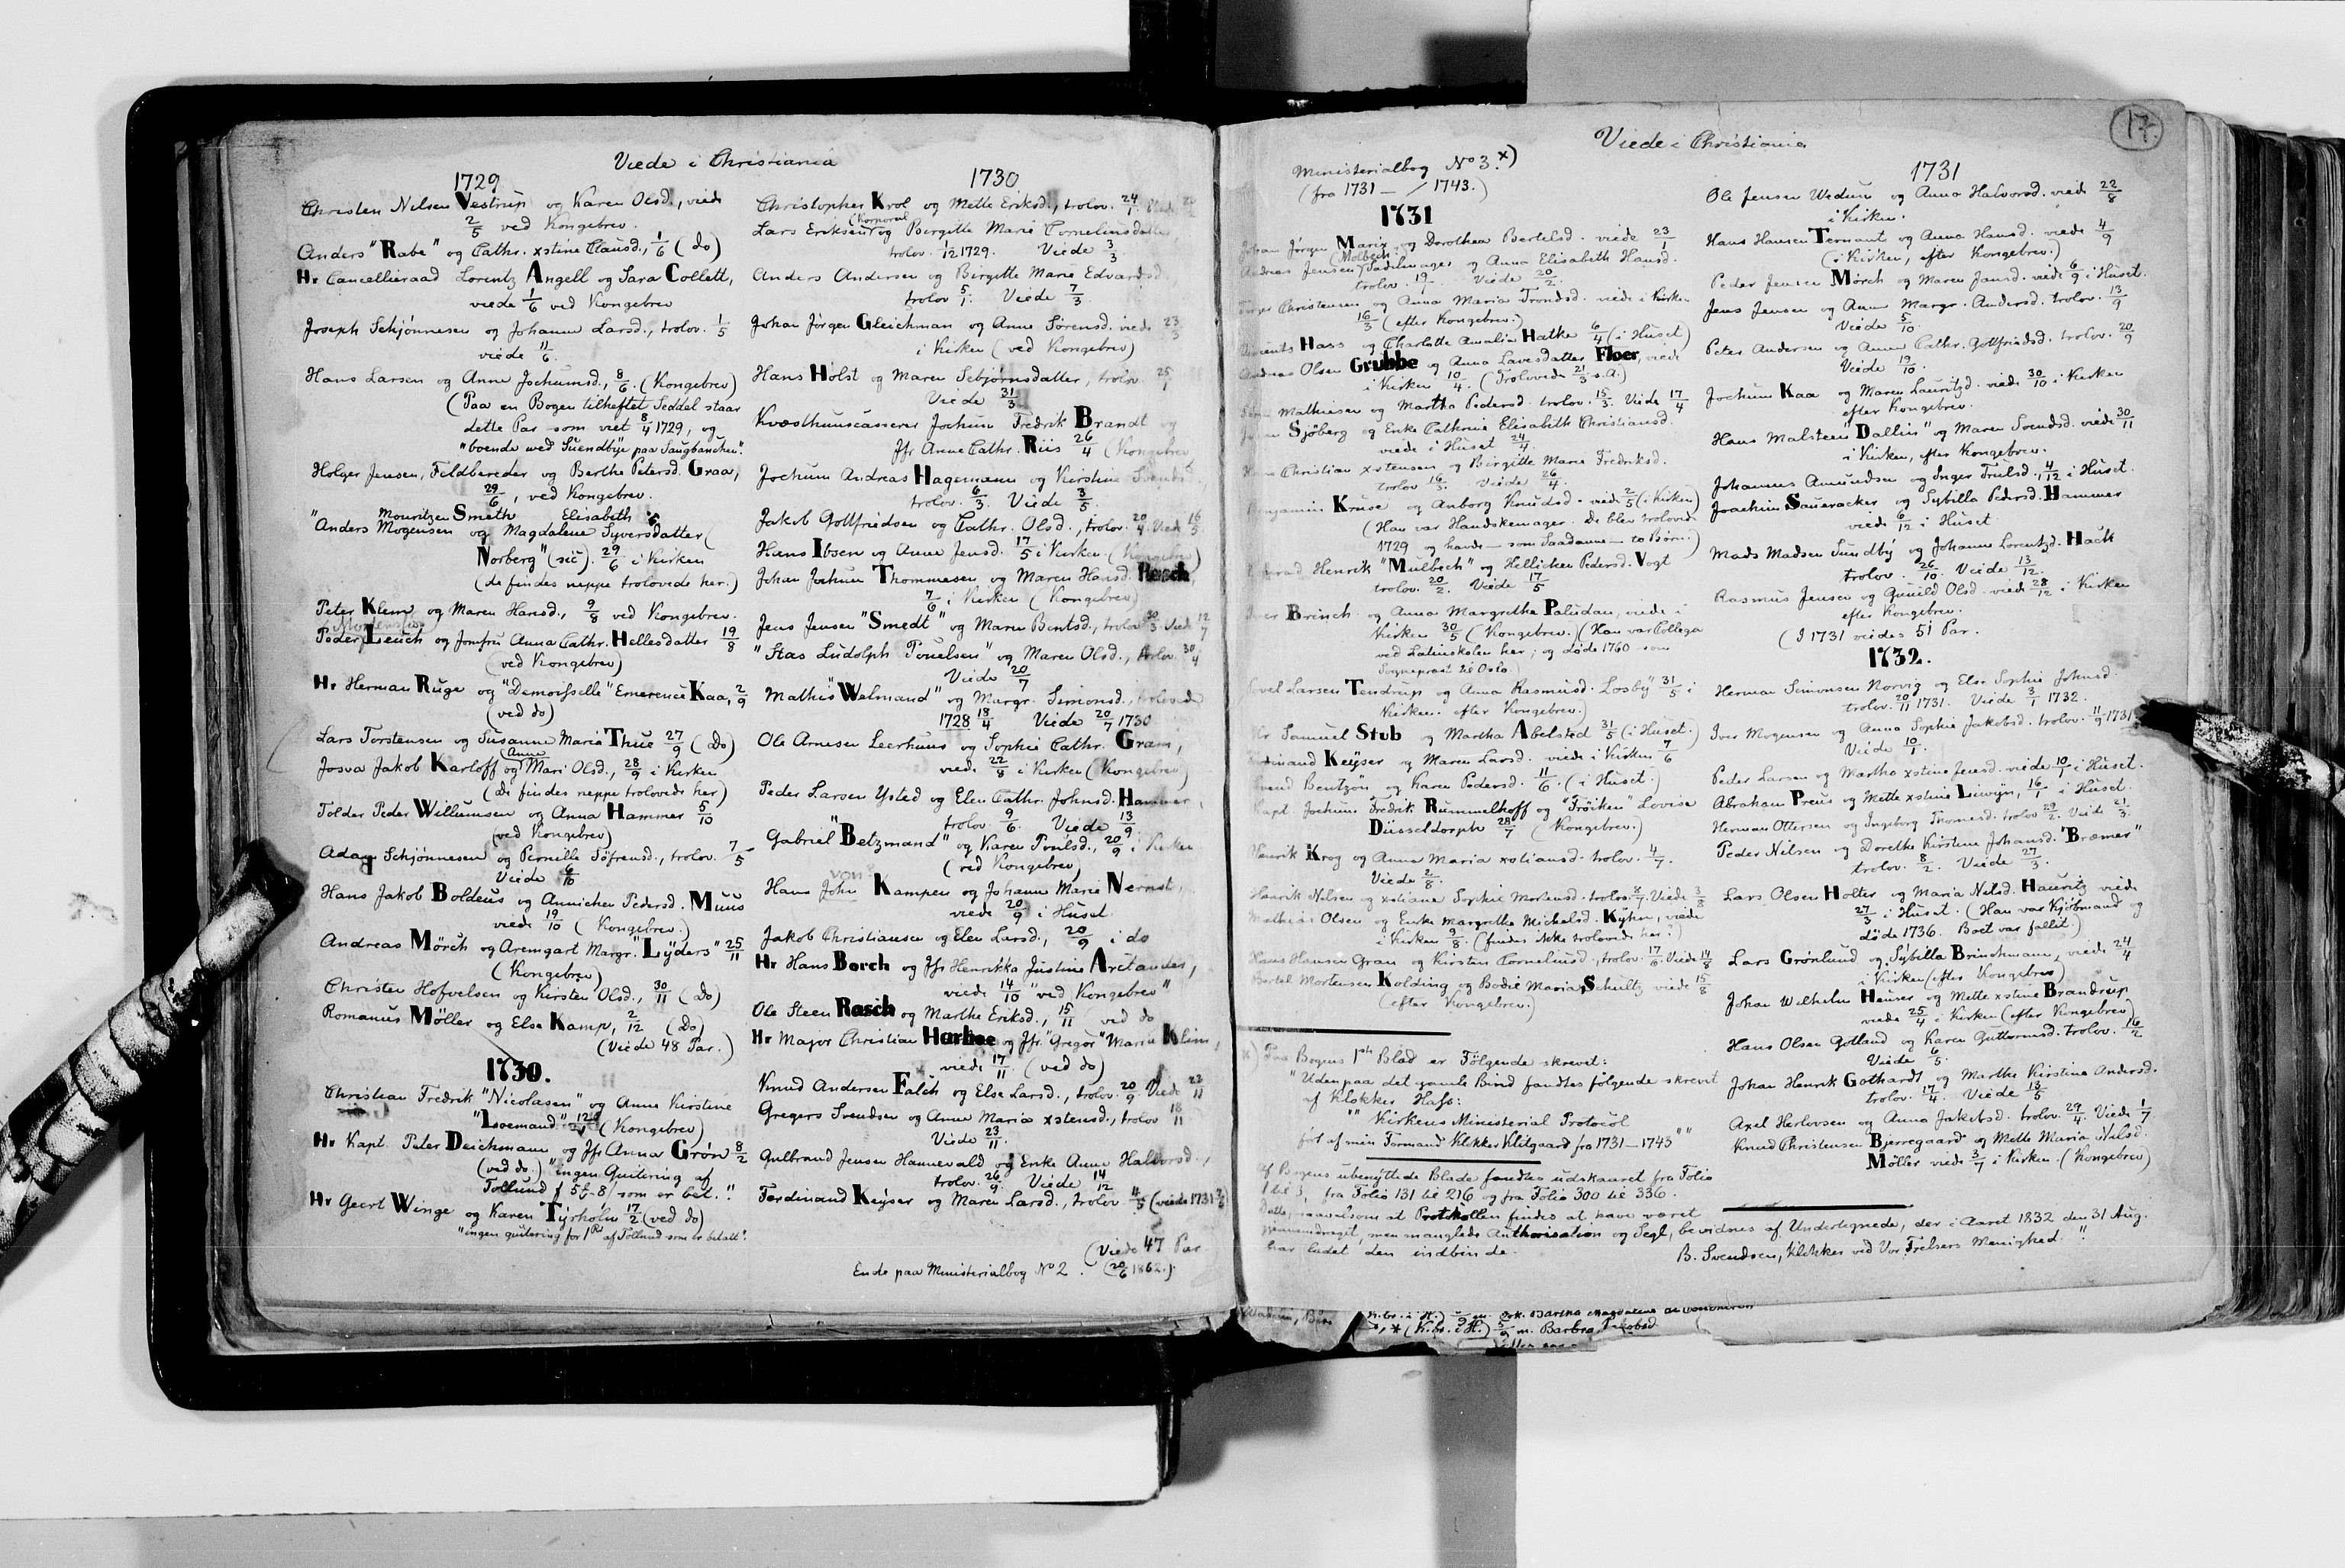 Viede i Christiania
1729
Christen Nilsen Vestrup og Karen Olsd., viede
2/5 ved Kongebrev.
Anders "Rabe" og Cathr. xstine Clausd., 1/6 (do)
Hr Cancelliraad Lorentz Angell og Sara Collett,
viede 1/6 ved Kongebrev
Joseph Schjönnesen og Johanne Larsd., trolov. 1/5
viede 11/6.
Hans Larsen og Anne Jochumsd., 8/6. (Kongebrev)
(Paa en Bogen tilheftet Seddel staar
dette Par som viet 8/4 1729, og
"boende ved Suendbye paa Saugbanchen".
Holger Jensen, Feldbereder og Berthe Petersd. Graa,
29/6, ved Kongebrev.
Mouritzen Smeth Elisabeth
"Anders Mogensen og Magdalene Syversdatter
Norberg" (sic). 29/6 i Kirken
(de findes neppe trolovede her.)
Peter Klem og Maren Hansd., 9/8 ved Kongebrev.
(Mortensen)
Peder Leuch og Jomfru Anna Cathr. Hellesdatter 19/8
(ved Kongebrev)
Hr Herman Ruge og "Demoisselle" Emerence Kaa, 2/9
(ved do)
Lars Torstensen og Susanne Maria Thue 27/9 (Do)
Anne
Josva Jakob Karloff og Mari Olsd., 28/9 i Kirken
(De findes neppe trolovede her)
Tolder Peder Willumsen og Anna Hammer 5/10
(ved Kongebrev)
Adam Schjönnesen og Pernille Söfrensd., trolov. 7/5
Viede 6/10
Hans Jakob Boldeus og Annichen Pedersd. Muus
viede 19/10 (Kongebrev.)
Andreas Mörch og Aremgart Margr. "Lyders" 25/11
(Kongebrev)
Christen Hofvelsen og Kirsten Olsd., 30/11 (Do)
Romanus Möller og Else Kamp, 2/12 (Do)
(Viede 48 Par.)
1730.
Christian Fredrik "Nicolasen" og Anne Kirstine
"Loemand" (Kongebrev)
Hr Kapt. Peter Deichmann og Jfr Anna Grön 8/2
(ved do.) "ingen Quitering af
Tollund f 5 som er bet."
Hr Geert Winge og Karen Tyrholm 17/2 (ved do)
"ingen quitering for 1 Rd af Tollund som er betalt".
1730
Christopher Krol og Mette Eriksd., trolov. 24/1
(Korporal
Lars Eriksen og Birgitte Marie Corneliusdatter
trolov. 1/12 1729. Viede 3/3.
Anders Andersen og Birgitte Marie Edvardsd
trolov 5/1. Viede 7/3.
Johan Jörgen Gleichman og Anne Sörensd. viede 23/3
i Kirken (ved Kongebrev)
Hans Holst og Maren Sebjörnsdatter, trolov. 25/1
Viede 31/3
Kvæsthuuscasserer Jochum Fredrik Brandt og
Jfr Anne Cathr. Riis 26/4 (Kongebrev
Jochum Andreas Hagemann og Kirstine Svendsd.
trolov. 6/3. Viede 3/5.
Jakob Gottfriedsen og Cathr. Olsd., trolov. 20/4. Viede 16/5
Hans Ibsen og Anne Jensd. 17/5 i Kirken. (Kongebrev)
Johan Jochum Thommesen og Maren Hansd. Rasch,
7/6 i Kirken (Kongebrev)
Jens Jensen "Smedt" og Maren Bentsd., trolov 30/3. Viede 12/7
"Stas Ludolph Pouelsen" og Maren Olsd., trolov. 30/4
Viede 20/7
Mathis "Welmand" og Margr. Simonsd., trolovede
1728 18/4 Viede 20/7 1730
Ole Arnesen Leerhuus og Sophie Cathr. Gram,
viede 22/8 i Kirken (Kongebrev)
Peder Larsen Ysted og Elen Cathr. Johnsd. Hammer,
trolov. 9/6. Viede 13/9.
Gabriel "Betzmand" og Karen Povlsd., 20/9 i Kirken
(ved Kongebrev)
von
Hans John Kampen og Johanne Marie Nernst,
viede 20/9 i Huset
Jakob Christiansen og Elen Larsd., 20/9 i do
Hr Hans Borch og Jfr Henrikka Justine Arctander,
viede 14/10 "ved Kongebrev"
Ole Steen Rasch og Marthe Eriksd., 15/11 ved do
Hr Major Christian Harboe og Jfr. "Gregor" Marie Klim,
viede 17/11 (ved do)
Knud Andersen Falch og Else Larsd., trolov. 20/9. Viede 22/11
Gregers Svendsen og Anne Maria xstensd., trolov 18/11
Viede 23/11.
Gulbrand Jensen Hannevald og Enke Anne Halvorsd.,
trolov. 26/9. Viede 14/12
Ferdinand Keyser og Maren Larsd., trolov (viede 1731 7/6)
(Viede 47 Par
Ende paa Ministerialbog No 2. (20/6 1862.).
Viede i Christiania
17.
Ministerialbog No 3. x)
(fra 1731 — / 1743.)
1731
Johan Jörgen Marix og Dorothea Bertelsd. viede 23/1
(Molbech
Andreas Jensen Sadelmager og Anna Elisabeth Hansd.
trolov. 19/1. Viede 20/2.
Christensen og Anna Maria Trondsd. viede i Kirken
16/3 (efter Kongebrev.)
Hass og Charlotte Amalia Hatke 6/4 (i Huset)
Andreas Olsen Grubbe og Anna Lavesdatter Floer, viede
i Kirken 10/4. (Trolovede 21/3 s.A.)
Mathiesen og Martha Pedersd. trolov. 15/3. Viede 17/4
Sjöberg og Enke Cathrine Elisabeth Christiansd.
viede i Huset 24/4.
Hans Christian xstensen og Birgitte Marie Fredriksd.
trolov 16/3. Viede 26/4.
Benjamin Kruse og Anborg Knudsd. viede 2/5 (i Kirken)
(Han var Handskemager. De blev trolovede
1729 og havde — som Saadanne — to Börn.)
Henrik "Mulbech" og Hellichen Pedersd. Vogt
trolov. 20/2. Viede 17/5
Iver Brinch og Anna Margrethe Paludan, viede i
Kirken 30/5 (Kongebrev.) (Han var Collega
ved Latinskolen her; og döde 1760 som
Sogneprest til Oslo.)
Larsen Tendrup og Anna Rasmusd. Losby" 31/5 i
Kirken. efter Kongebrev.)
Hr Samuel Stub og Martha Abelsted 31/5 (i Huset.)
Ferdinand Keyser og Maren Larsd. viede i Kirken 7/6
Svend Bentzön og Karen Pedersd. 11/6. (i Huset.)
Kapt. Jochum Fredrik Rummelhoff og "Fröiken" Lovise
Düsseldorph 28/7 (Kongebrev.)
Henrik Krog og Anna Maria xstiansd. trolov. 4/7.
Viede 2/8.
Henrik Nilsen og xstiane Sophie Mortensd. trolov. Viede 3/8
Mathias Olsen og Enke Margrethe Michelsd. Kyhn, viede
i Kirken 9/8. (findes ikke trolovede her?)
Hans Hansen Gran og Kirsten Corneliusd., trolov. 17/6. Viede 14/8
Bertel Mortensen Kolding og Bodil Maria Schultz viede 15/8
(efter Kongebrev.)
x) Paa Bogens 1ste Blad er Fölgende skrevet:
"Uden paa det gamle Bind fandtes fölgende skrevet
af Klokker Hass:
"" Kirkens Ministerial Protocol
fört af min Formand Klokker Klitgaard fra 1731—1743 ""
Af Bogens ubenyttede Blade fandtes udskaaret fra Folio
1 til 3, fra Folio 131 til 216 og fra Folio 300 til 336.
Dette, saavelsom at Protokollen findes at have været
gjennemdraget, men manglede Authorisation og Segl, bevidnes af Undertegnede, der i Aaret 1832 den 31 Aug.
har ladet den indbinde.
B. Svendsen, Klokker ved Vor Frelsers Menighed."
1731
Ole Jensen Wedum og Anna Halvorsd. viede 22/8
i Kirken.
Hans Hansen Ternant og Anna Hansd. viede 4/9
(i Kirken, efter Kongebrev.)
Peder Jensen Mörch og Maren Jansd. viede 6/9 i Huset.
Jens Jensen og Anne Margr. Andersd. trolov. 13/9
Viede 5/10.
Peter Andersen og Anne Cathr. Gottfriedsd. trolov. 20/9
Viede 19/10.
Jochum Kaa og Maren Lauritzd. viede 30/10 i Kirken
efter Kongebrev.
Hans Malsteen "Dallin" og Maren Svendsd. viede 30/11
i Kirken, efter Kongebrev.
Johannes Amundsen og Inger Trulsd., 4/12 i Huset.
Joachim Saueracker og Sybilla Pedersd. Hammer
viede 6/12 i Huset
Mads Madsen Sundby og Johanne Lorentzd. Hack
trolov. 26/10. Viede 13/12.
Rasmus Jensen og Gunild Olsd. viede 28/12 i Kirken
efter Kongebrev.
(I 1731 viedes 51 Par.
1732.
Herman Simonsen Norvig og Else Sophie Johnsd.
trolov. 20/11 1731. Viede 3/1 1732.
Iver Mogensen og Anna Sophie Jakobsd. trolov. 11/9 1731
Viede 10/1.
Peder Larsen og Martha xstine Jensd. viede 10/1 i Huset.
Abraham Preus og Mette xstine Liewyn, 16/1 i Huset.
Herman Ottersen og Ingeborg Thomesd. trolov 29/2. Viede 21/3.
Peder Nilsen og Dorethe Kirstine Johansd. "Bræmer"
trolov. 8/2. Viede 27/3.
Lars Olsen Holter og Maria Nilsd. Hauritz viede
27/3 i Huset. (Han var Kjöbmand og
döde 1736. Boet var fallit.)
Lars Grönlund og Sybilla Brinchmann, viede 24/4
i Kirken (efter Kongebrev)
Johan Wilhelm Heuser og Mette xstine Brandrup
viede 25/4 i Kirken (efter Kongebrev)
Hans Olsen Gotland og Karen Guttormsd. trolov. 16/2
Viede 6/5.
Johan Henrik Gothardt og Marthe Kirstine Andersd.
trolov. 17/4. Viede 13/5
Axel Herlovsen og Anna Jakobsd. trolov. 29/4. Viede 1/7
Knud Christensen Bjerregaard og Mette Maria Nilsd.
Möller viede 3/7 i Kirken. (Kongebrev)